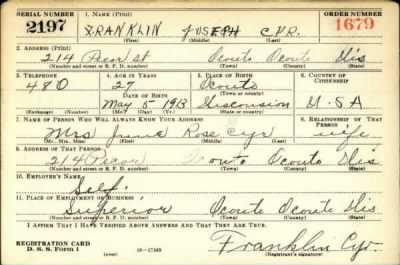 SERIAL NUMBER 1. NAME (Print) ORDER NUMBER
2197 FRANKLIN JOSEPH CYR. 1679
(First) (Middle) (Last)
2. ADDRESS (Print)
214 Pecor St Oconto Oconto Wis
(Number and street or R. F. D. number) (Town) (County) (State)
3. TELEPHONE 4. AGE IN YEARS 5. PLACE OF BIRTH 6. COUNTRY OF CITIZENSHIP
480 27 Oconto
DATE OF BIRTH (Town or county)
May 5 1913 Wisconsin U.S.A
(Exchange) (Number) (Mo.) (Day) (Yr.) (State or country)
7. NAME OF PERSON WHO WILL ALWAYS KNOW YOUR ADDRESS 8. RELATIONSHIP OF THAT PERSON
Mrs Rose Cyr wife
(Mr., Mrs., Miss) (First) (Middle) (Last)
9. ADDRESS OF THAT PERSON
214 Pecor Oconto Oconto Wis
(Number and street or R. F. D. number) (Town) (County) (State)
10. EMPLOYER'S NAME
Self.
11. PLACE OF EMPLOYMENT OR BUSINESS
Superior Oconto Oconto Wis
(Number and street or R. F. D. number) (Town) (County) (State)
I AFFIRM THAT I HAVE VERIFIED ABOVE ANSWERS AND THAT THEY ARE TRUE.
REGISTRATION CARD
D. S. S. Form 1 (over) Franklin Cyr.
(Registrant's signature)